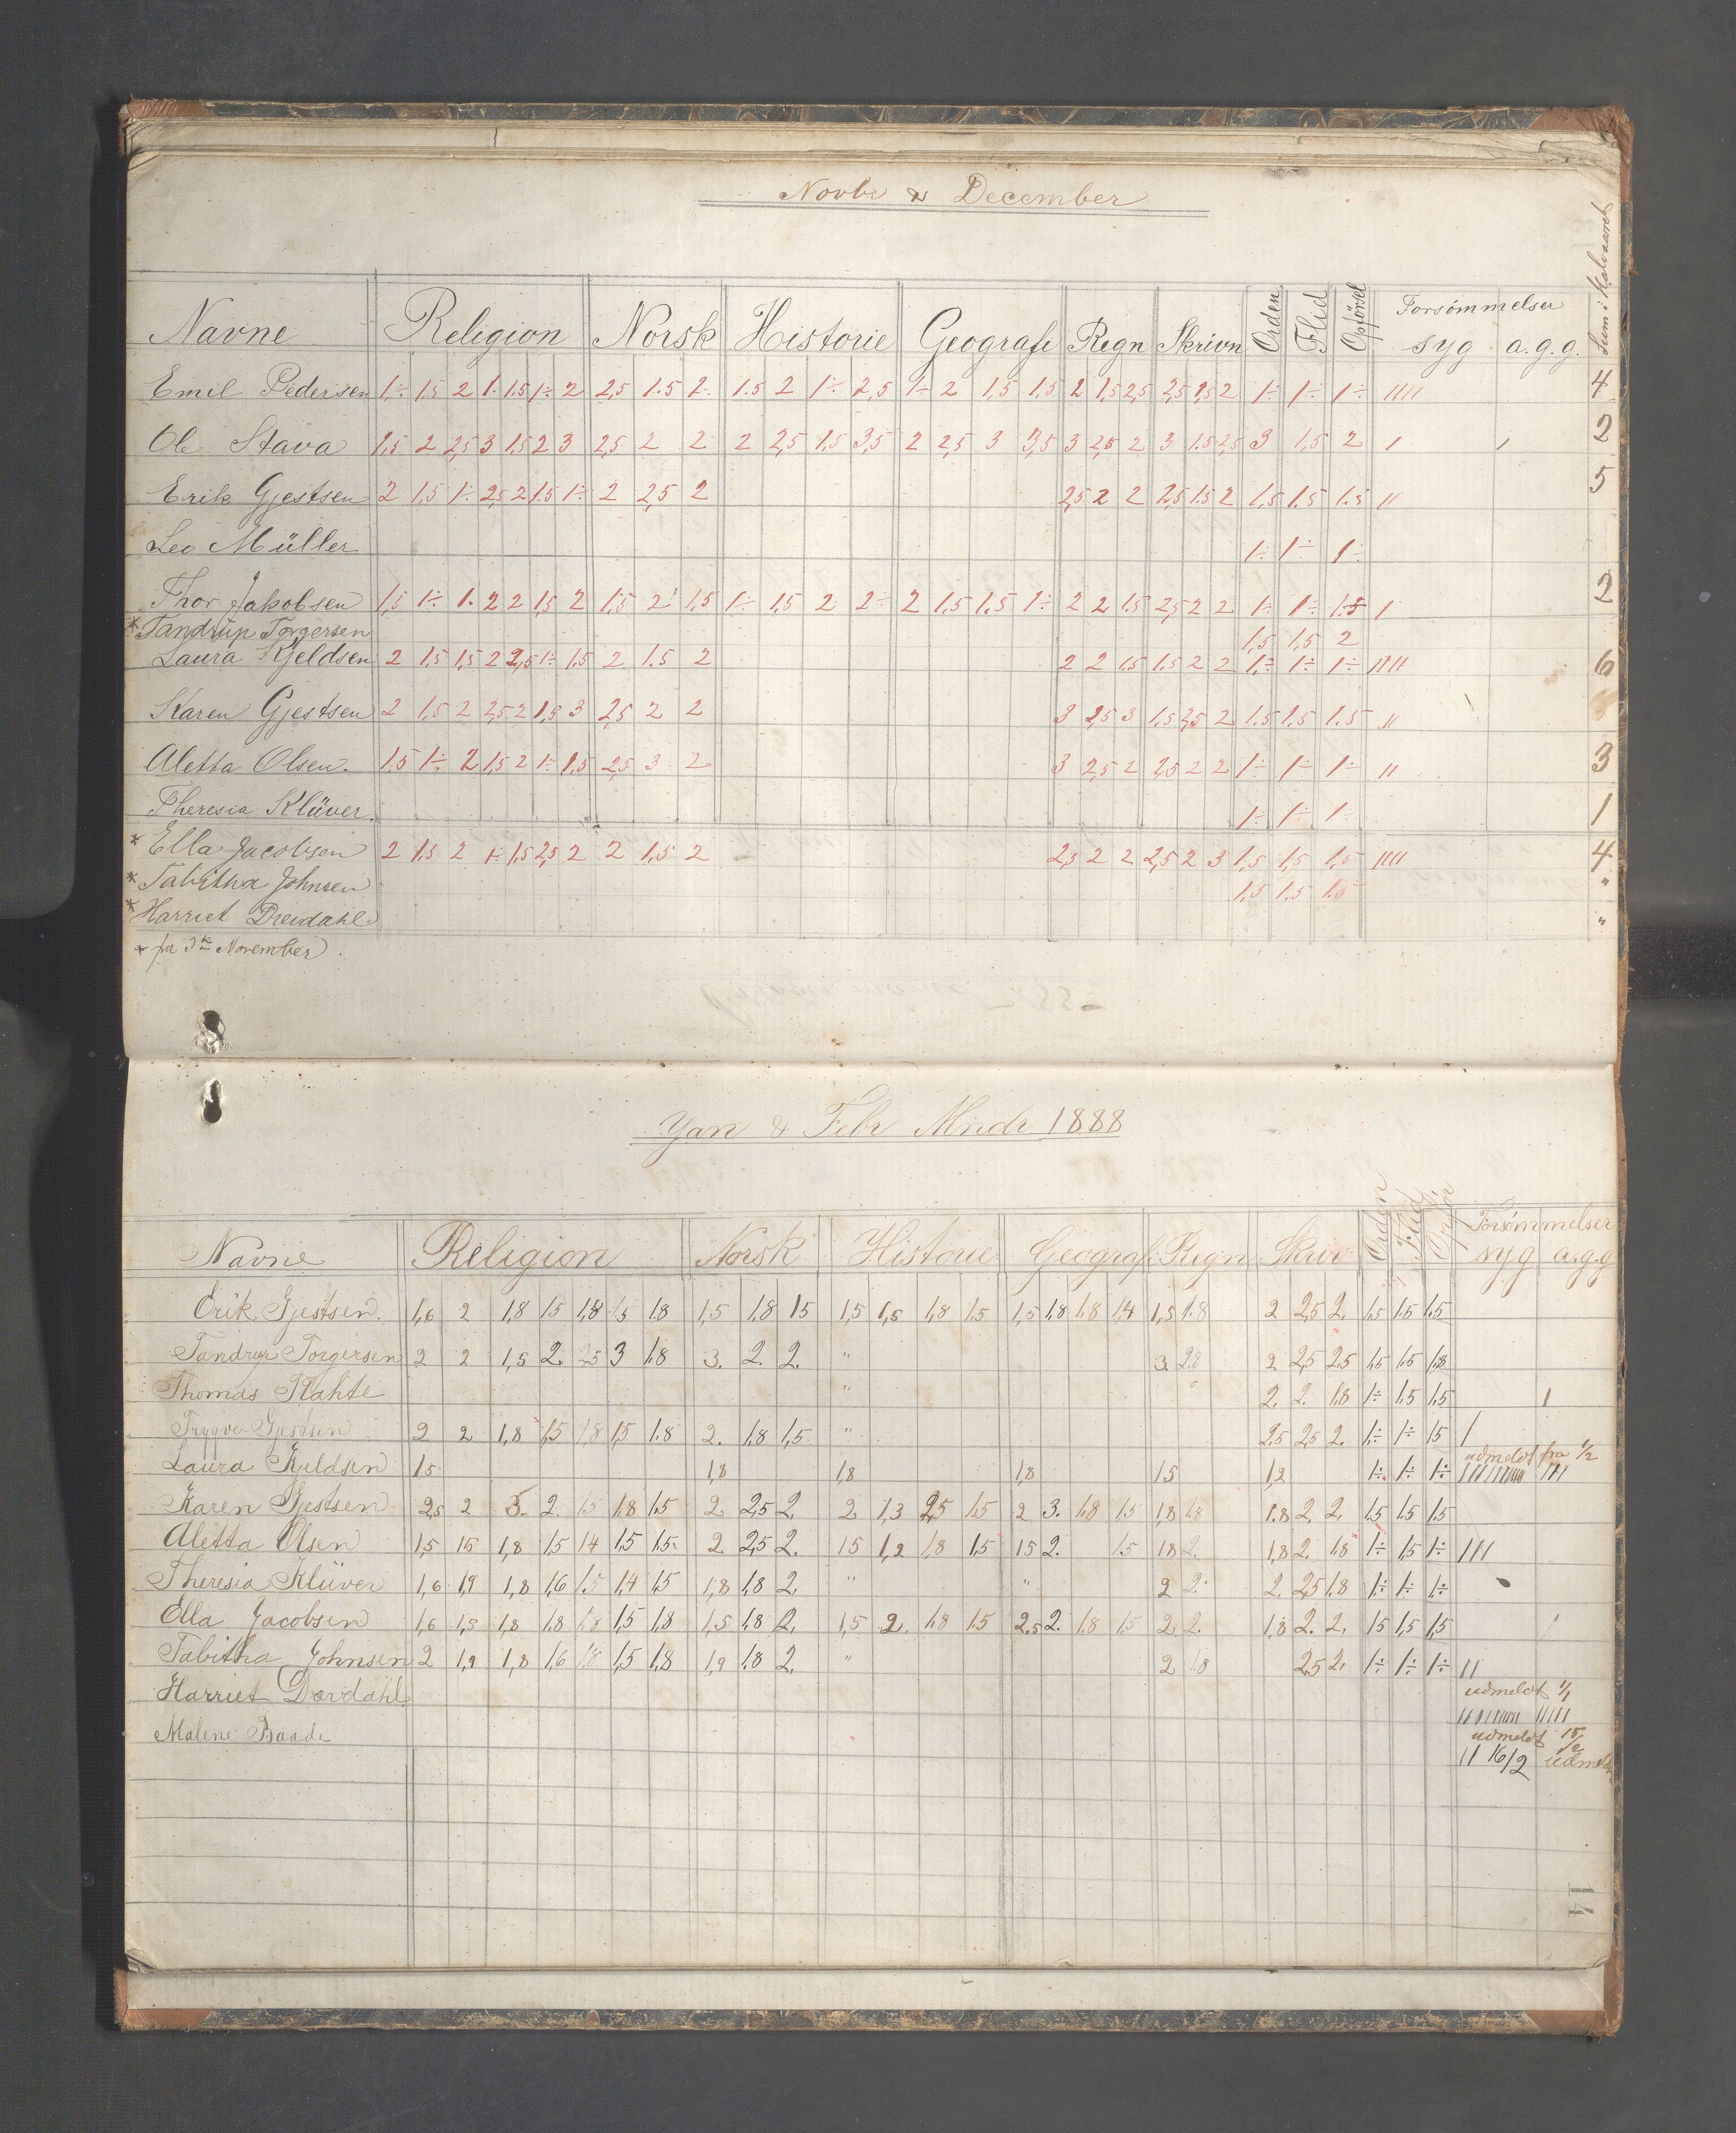 Novbr & December
Navne Religion Norsk Historie Geografi Regn Skrivn Orden Flid Opførsel Forsömmelser syg a.g.g. Sum i Halvaaret
Emil Pedersen 1÷ 1,5 2 1÷ 1.5 1÷ 2 2,5 1.5 2÷ 1.5 2 1÷ 2,5 1÷ 2 1,5 1,5 2 1,5 2,5 2,5 1,5 2 1÷ 1÷ 1÷ //// 4
Ole Stava 1,5 2 2,5 3 1,5 2 3 2,5 2 2 2 2,5 1,5 3,5 2 2,5 3 3,5 3 2,5 2 3 1.5 2,5 3 1,5 2 / / 2
Erik Gjestsen 2 1,5 1÷ 2,5 2 1.5 1÷ 2 2,5 2 2,5 2 2 2,5 1.5 2 1,5 1.5 1.5 // 5
Leo Müller 1÷ 1÷ 1÷
Thor Jakobsen 1,5 1÷ 1. 2 2 1,5 2 1,5 2 1,5 1÷ 1,5 2 2÷ 2 1,5 1,5 1÷ 2 2 1,5 2,5 2 2 1÷ 1÷ 1.5 / 2
* Tandrup Torgersen 1,5 1,5 2
Laura Kjeldsen 2 1,5 1,5 2 2,5 1÷ 1.5 2 1.5 2 2 2 1,5 1,5 2 2 1÷ 1÷ 1÷ //// 6
Karen Gjestsen 2 1,5 2 2,5 2 1,5 3 2,5 2 2 3 2,5 3 1,5 2,5 2 1.5 1.5 1.5 //
Aletta Olsen. 1.5 1÷ 2 1,5 2 1÷ 1,5 2,5 3 2 3 2,5 2 2,5 2 2 1÷ 1÷ 1÷ // 3
Theresia Klüver 1÷ 1÷ 1÷ 1
* Ella Jacobsen 2 1,5 2 1÷ 1,5 2,5 2 2 1,5 2 2,5 2 2 2,5 2 3 1,5 1,5 1,5 //// 4
* Tabitha Johnsen 1,5 1.5 1.5 "
* Harriet Dreidahl "
* fra 3die November.
Jan & Febr Mndr 1888
Navne Religion Norsk Historie Geografi Regn Skriv Orden Flid Opför Forsömmelser syg a.g.g
Erik Gjestsen. 1,6 2 1,8 1,5 1,8 1,5 1.8 1,5 1,8 1,5 1,5 1,5 1,8 1,5 1,5 1,8 1,8 1,4 1,5 1.8 2 2,5 2. 1,5 1,5 1,5
Tandrup Torgersen 2 2 1,5 2. 2,5 3 1.8 3. 2. 2. " 3. 2.8 2 2,5 2.5 1,5 1,5 1,8
Thomas Rahte " " 2. 2. 1.8 1÷ 1,5 1,5 1
Trygve Gjestsen 2 2 1,8 1,5 1,8 1,5 1.8 2. 1.8 1,5 " 2,5 2,5 2. 1÷ 1÷ 1,5 /
Laura Kjeldsen 1.5 1,8 1,8 1,8 1,5 1,2 1÷ 1÷ 1÷ udmeldt fra 1/2
Karen Gjestsen 2,5 2 3. 2. 1,5 1,8 1,5 2. 2,5 2. 2 1,3 2,5 1,5 2 3. 1,8 1,5 1,8 1,8 1.8 2. 2. 1,5 1,5 1,5
Aletta Olsen 1,5 1,5 1,8 1,5 1,4 1,5 1,5. 2. 2,5 2. 1,5 1,2 1,8 1,5 1,5 2. 1.5 1,8 2. 1,8 2. 1.8 1÷ 1,5 1÷ ///
Theresia Klüver 1,6 1,9 1,8 1,6 1,5 1,4 1,5 1,8 1,8 2. " " 2 2. 2. 2,5 1.8 1÷ 1÷ 1÷
Ella Jacobsen 1,6 1,5 1,8 1.8 1,8 1,5 1,8 1,5 1,8 2. 1,5 2. 1.8 1,5 2.5 2. 1.8 1,5 2. 2. 1,8 2. 2. 1,5 1,5 1,5 /
Tabitha Johnsen 2 1,9 1,8 1,6 1,8 1,5 1,8 1,9 1.8 2. " 2 1.8 2.5 2. 1÷ 1÷ 1÷ //
Harriet Dærdahl. udmeldt 1/1
Malene Baade udmeldt 15/2
// 16/2 udmeldt
14